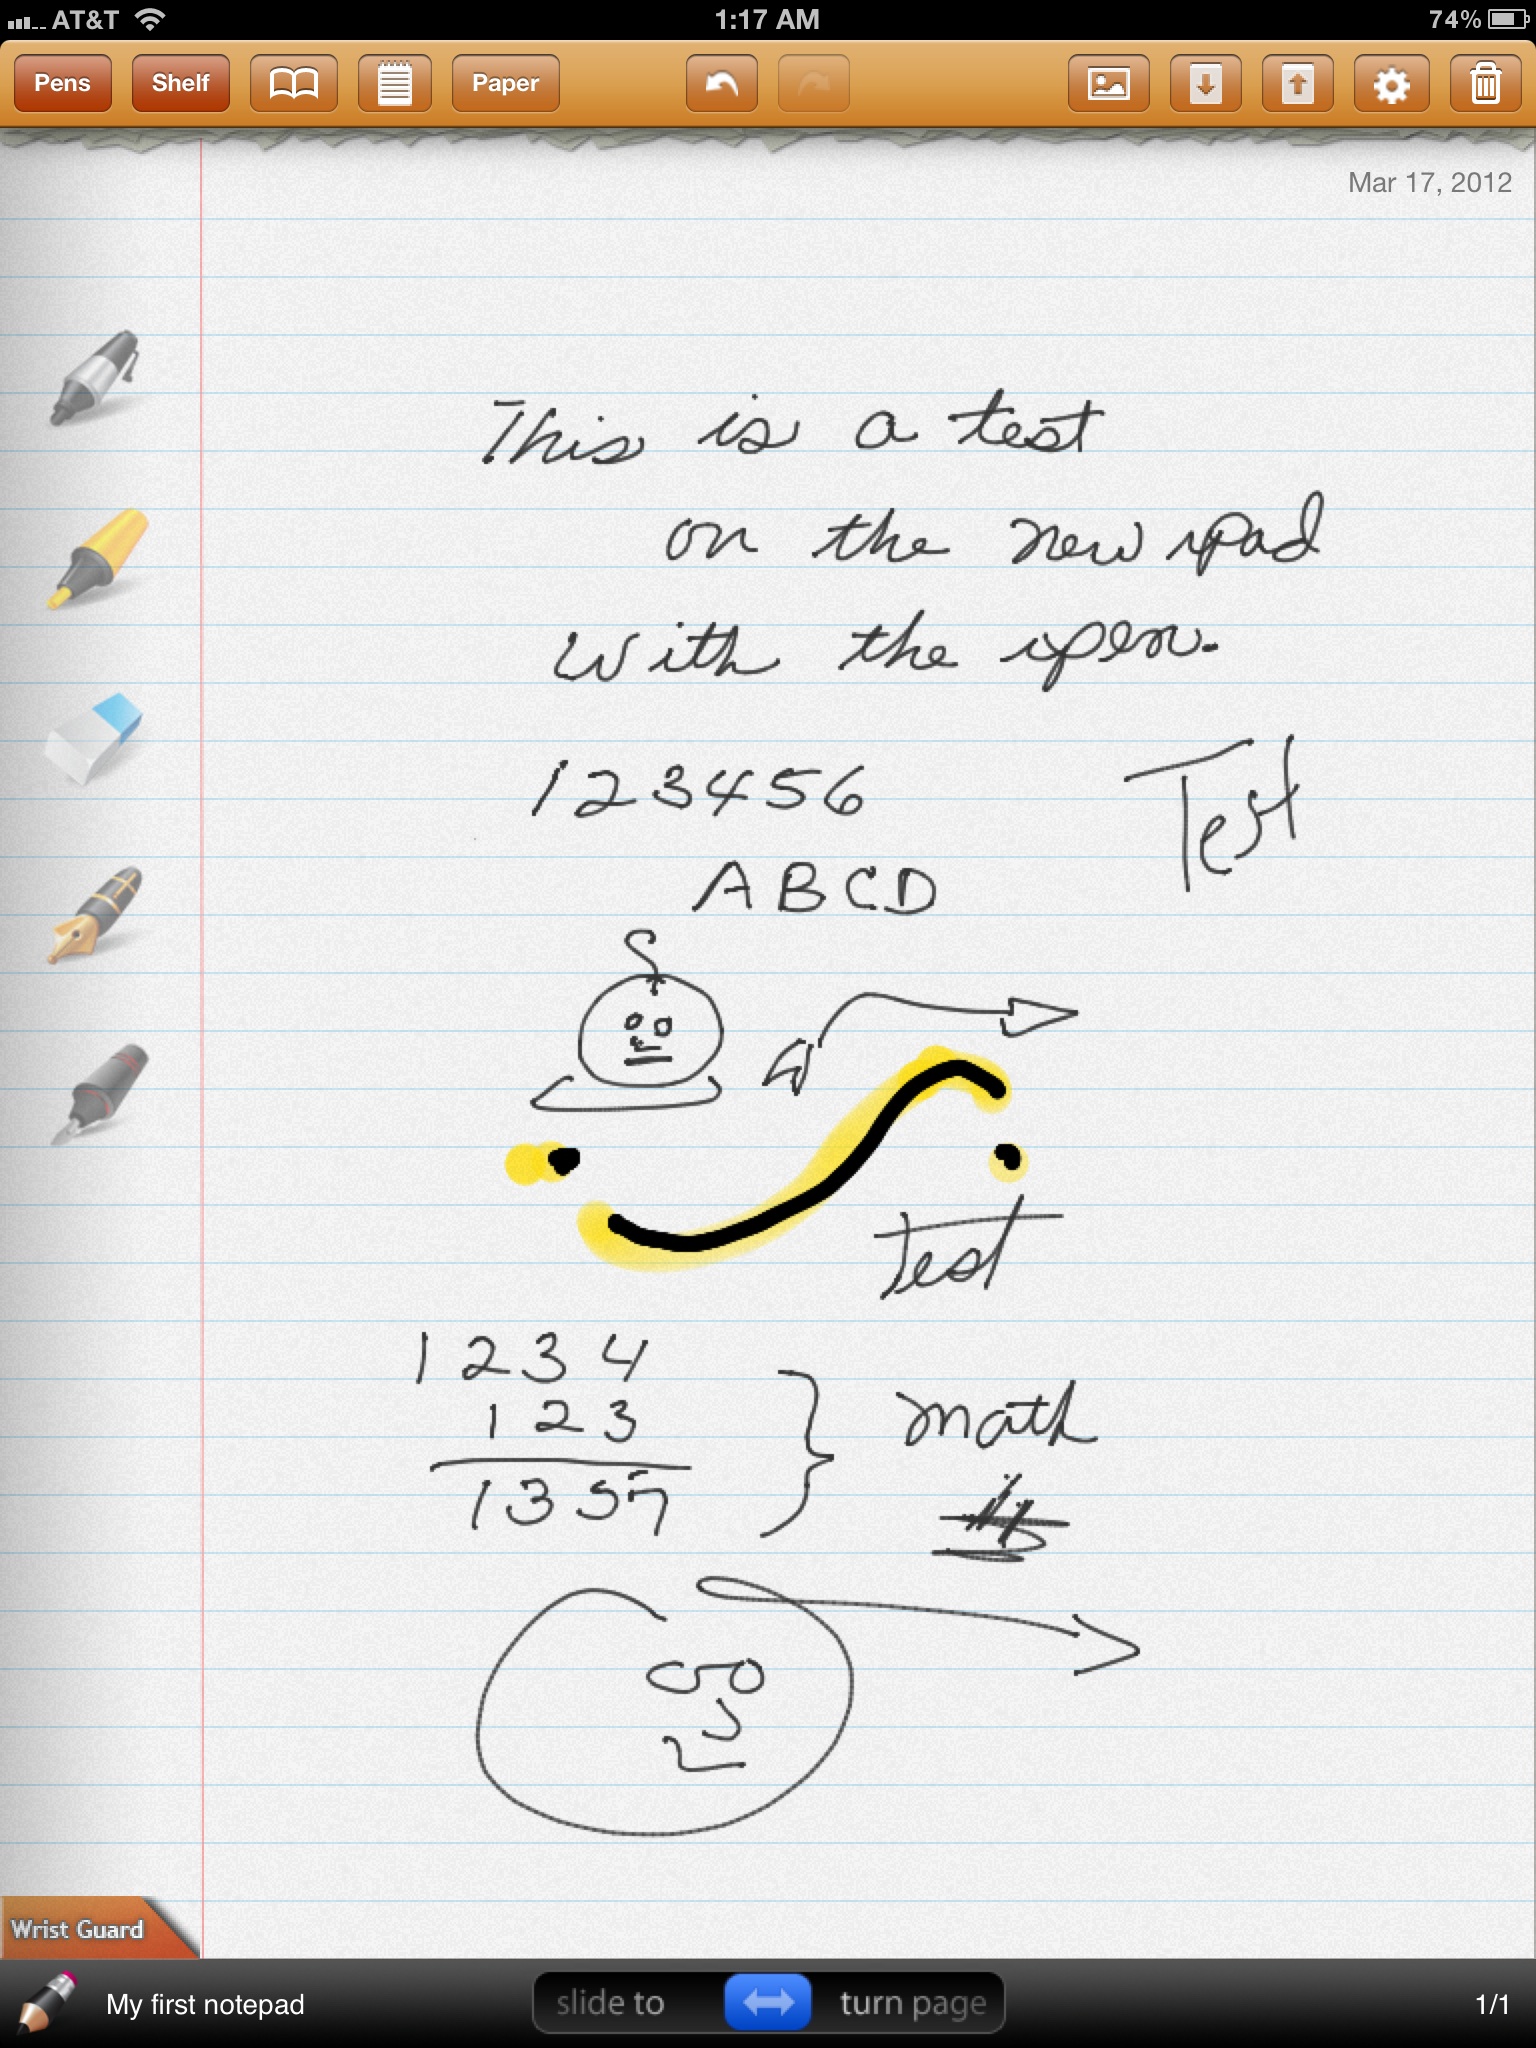 AT&T 1:17 AM 74%
Pens Shelf Paper
Mar 17, 2012
This is a test
on the new ipad
with the ipen.
123456
Test
ABCD
Test
1234
123
1357
math
Wrist Guard
My first notepad slide to turn page 1/1